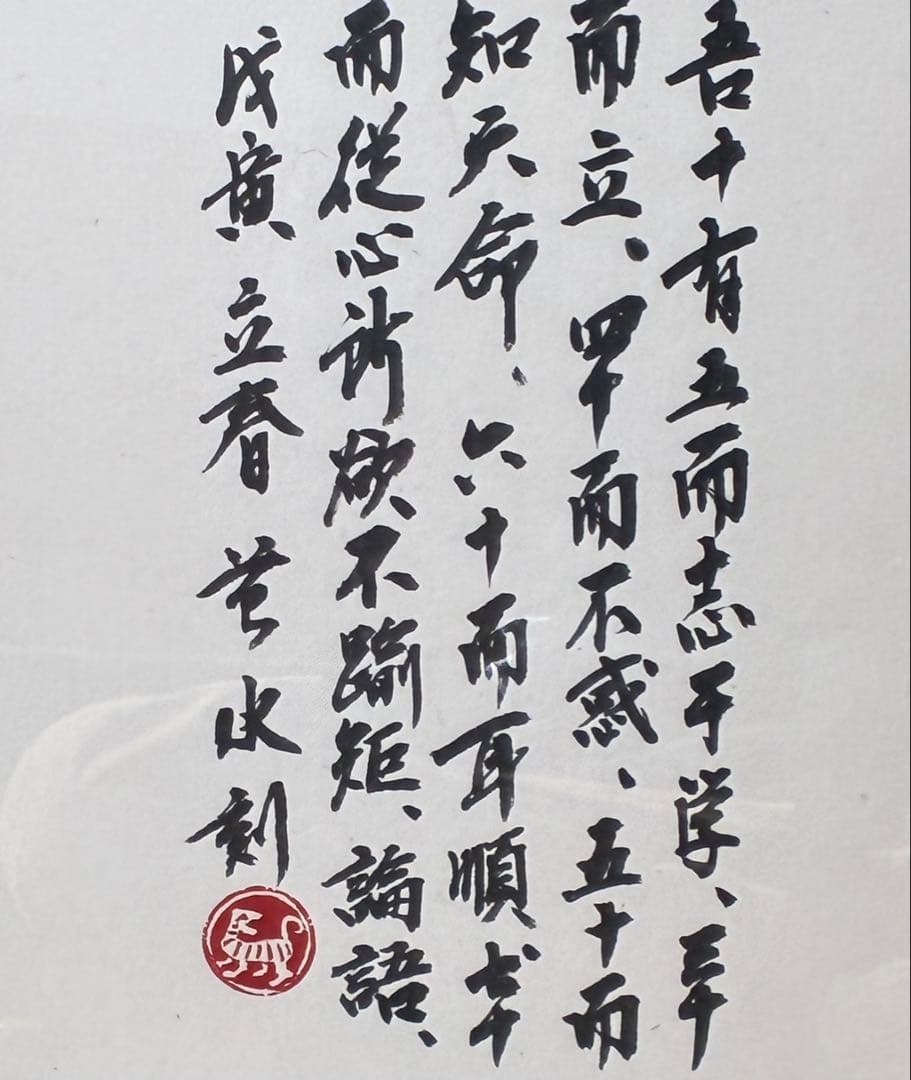 吾十有五而志于学、三十
而立、四十而不惑、五十而
知天命、六十而耳順七十
而從心所欲不踰矩、論語、
戊寅立春 苍水刻